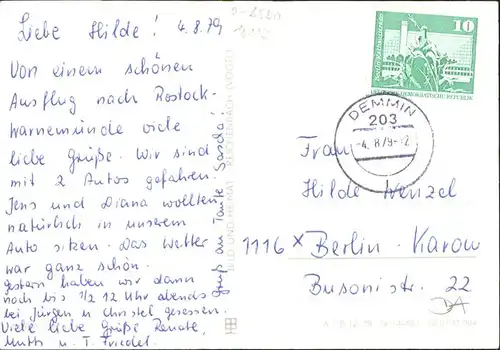 Liebe Hilde! 4.8.79
Von einem schönen
Ausflug nach Rostock-
Warnemünde viele
liebe Grüße. Wir sind
mit 2 Autos gefahren.
Jens und Diana wollten
natürlich in unserem
Auto sitzen. Das Wetter
war ganz schön.
Gestern haben wir dann
noch bis 1/2 12 Uhr abends
bei Jürgen u. Christel gesessen.
Viele liebe Grüße Renate,
Mutti u. T. Friedel.
Gruß an Tante
BILD UND HEIMAT REICHENBACH (VOGTL)
10
DEUTSCHE DEMOKRATISCHE REPUBLIK
DEMMIN
203
-4.8.79-12
Frau
Hilde Wenzel
1116 x Berlin-Karow
Busonistr. 22